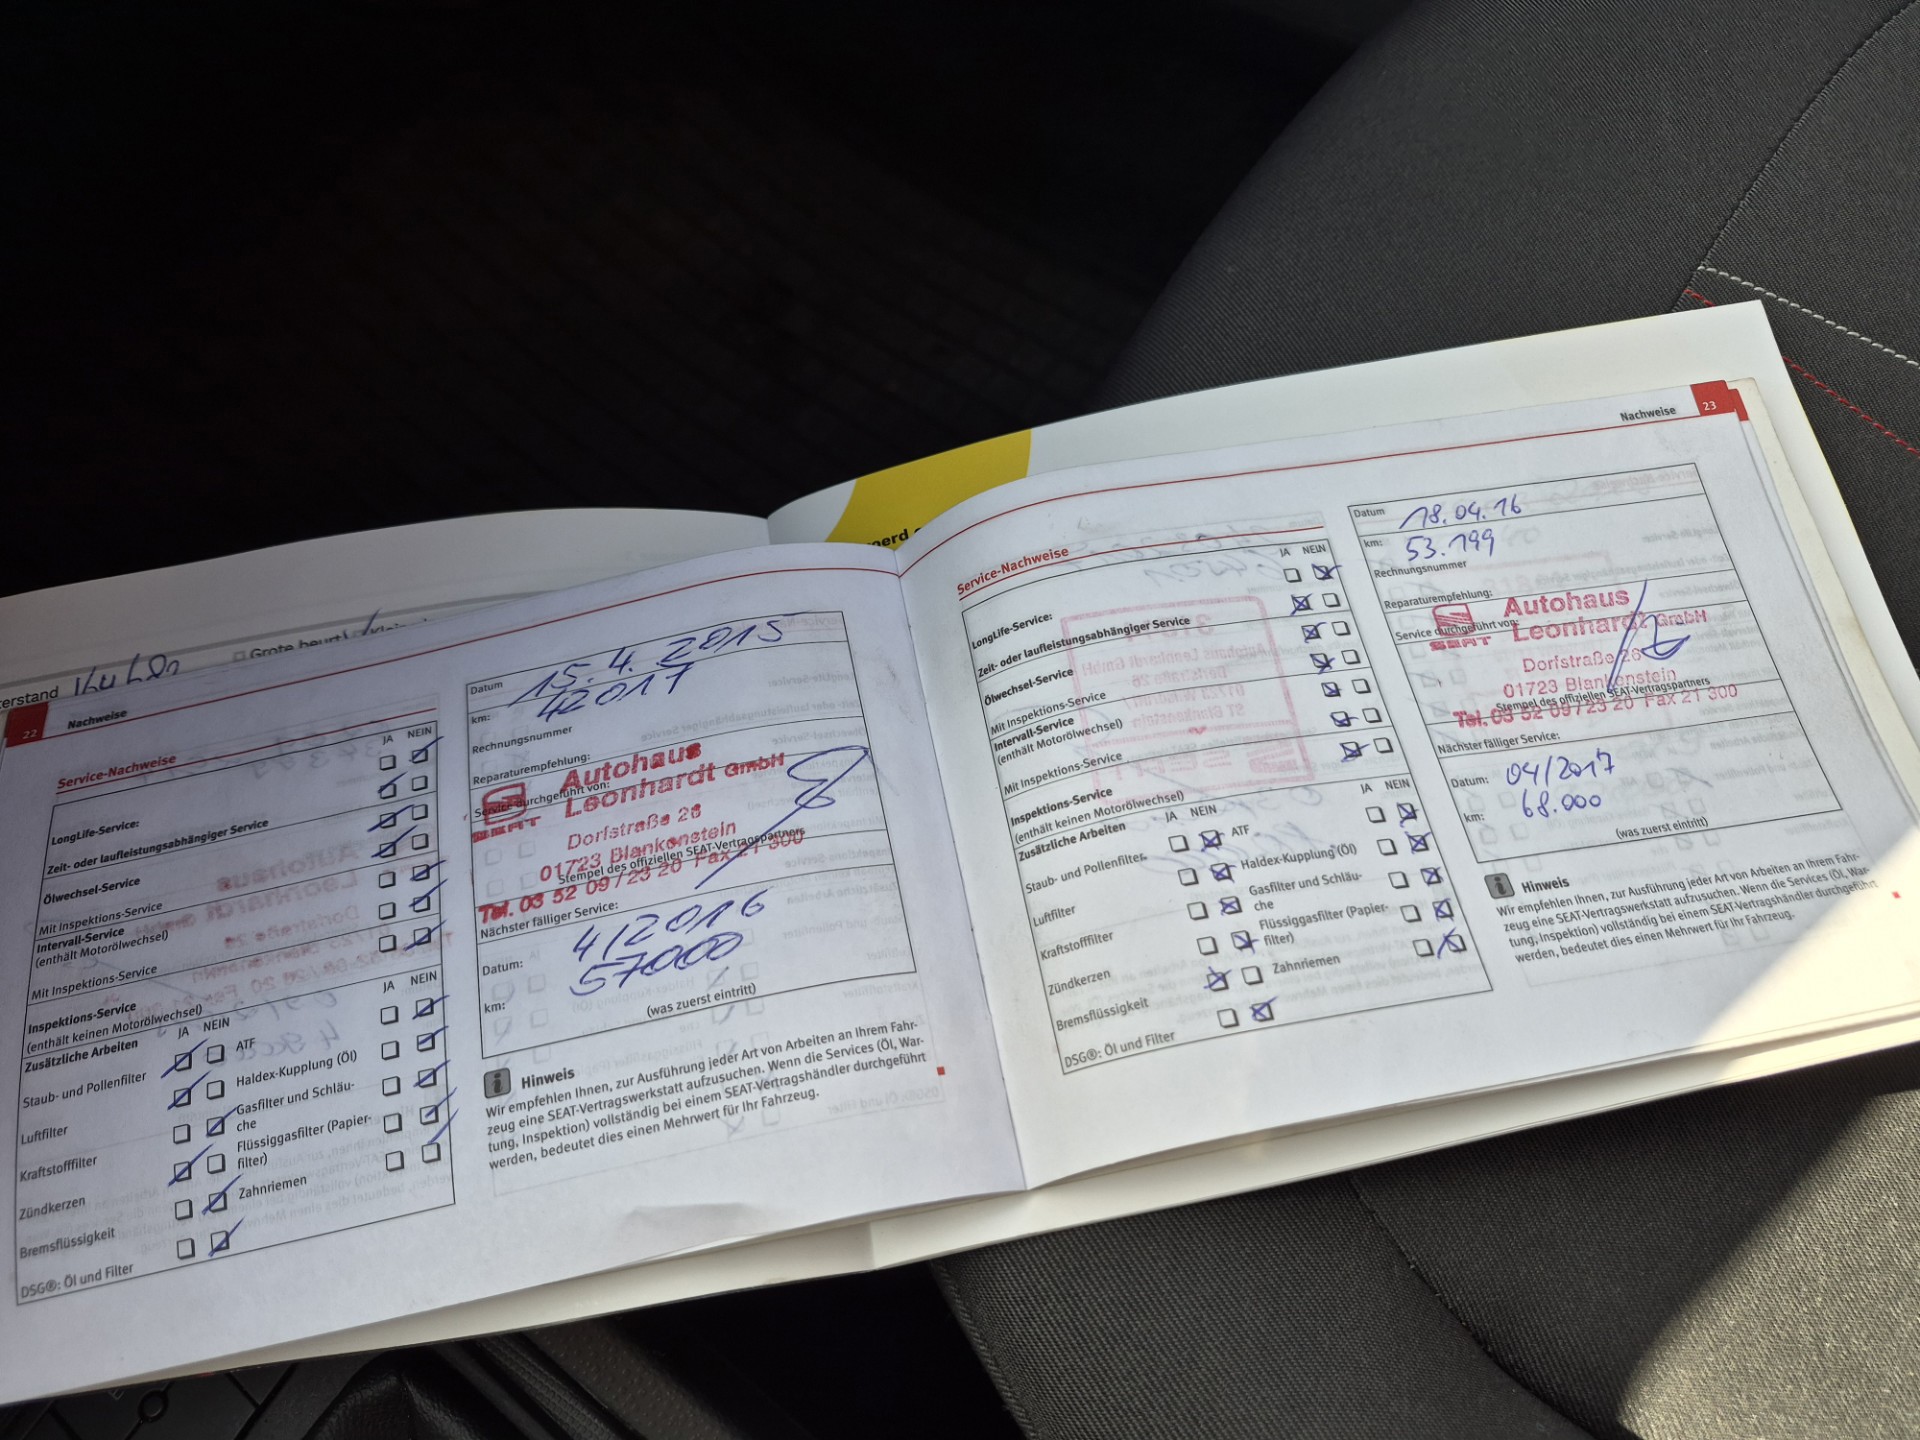 Grote beurt
terstand
22
Nachweise
Service-Nachweise
JA NEIN
LongLife-Service:
Zeit- oder laufleistungsabhängiger Service
Ölwechsel-Service
Mit Inspektions-Service
Intervall-Service
(enthält Motorölwechsel)
Mit Inspektions-Service
Inspektions-Service
(enthält keinen Motorölwechsel)
Zusätzliche Arbeiten
JA NEIN
JA NEIN
Staub- und Pollenfilter
ATF
Luftfilter
Haldex-Kupplung (Öl)
Kraftstofffilter
Gasfilter und Schläu-
che
Zündkerzen
Flüssiggasfilter (Papier-
filter)
Bremsflüssigkeit
Zahnriemen
DSG®: Öl und Filter
Datum 15.4.2015
km: 42017
Rechnungsnummer
Reparaturempfehlung:
Service durchgeführt von:
SEAT
Autohaus
Leonhardt GmbH
Dorfstraße 26
01723 Blankenstein
Stempel des offiziellen SEAT-Vertragspartners
Tel. 03 52 09 / 23 20 Fax 21 300
Nächster fälliger Service:
Datum: 4/2016
km: 57000
(was zuerst eintritt)
Hinweis
Wir empfehlen Ihnen, zur Ausführung jeder Art von Arbeiten an Ihrem Fahr-
zeug eine SEAT-Vertragswerkstatt aufzusuchen. Wenn die Services (Öl, War-
tung, Inspektion) vollständig bei einem SEAT-Vertragshändler durchgeführt
werden, bedeutet dies einen Mehrwert für Ihr Fahrzeug.
Nachweise
23
Service-Nachweise
JA NEIN
LongLife-Service:
Zeit- oder laufleistungsabhängiger Service
Ölwechsel-Service
Mit Inspektions-Service
Intervall-Service
(enthält Motorölwechsel)
Mit Inspektions-Service
Inspektions-Service
(enthält keinen Motorölwechsel)
Zusätzliche Arbeiten
JA NEIN
JA NEIN
Staub- und Pollenfilter
ATF
Luftfilter
Haldex-Kupplung (Öl)
Kraftstofffilter
Gasfilter und Schläu-
che
Zündkerzen
Flüssiggasfilter (Papier-
filter)
Bremsflüssigkeit
Zahnriemen
DSG®: Öl und Filter
Datum 18.04.16
km: 53.199
Rechnungsnummer
Reparaturempfehlung:
Service durchgeführt von:
SEAT
Autohaus
Leonhardt GmbH
Dorfstraße 26
01723 Blankenstein
Stempel des offiziellen SEAT-Vertragspartners
Tel. 03 52 09 / 23 20 Fax 21 300
Nächster fälliger Service:
Datum: 04/2017
km: 68.000
(was zuerst eintritt)
Hinweis
Wir empfehlen Ihnen, zur Ausführung jeder Art von Arbeiten an Ihrem Fahr-
zeug eine SEAT-Vertragswerkstatt aufzusuchen. Wenn die Services (Öl, War-
tung, Inspektion) vollständig bei einem SEAT-Vertragshändler durchgeführt
werden, bedeutet dies einen Mehrwert für Ihr Fahrzeug.